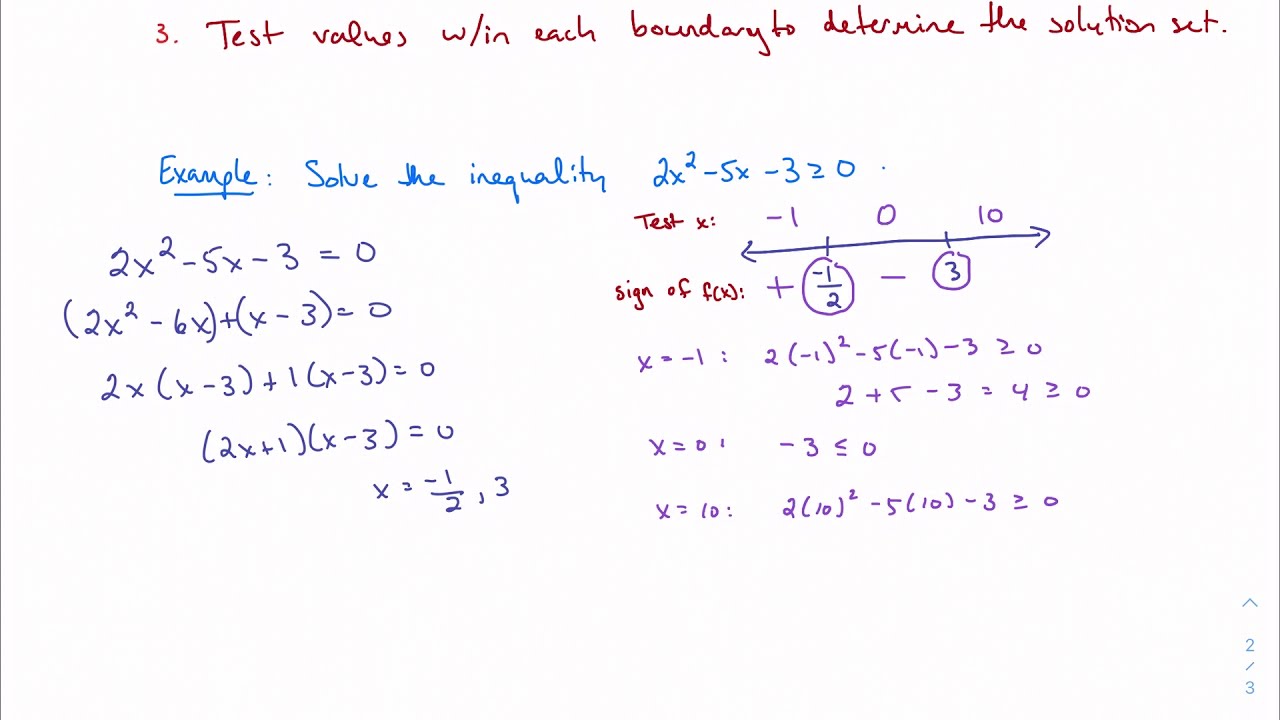 3. Test values w/in each boundary to determine the solution set.
Example: Solve the inequality 2x² - 5x - 3 ≥ 0.
2x² - 5x - 3 = 0
(2x² - 6x) + (x - 3) = 0
2x(x - 3) + 1(x - 3) = 0
(2x + 1)(x - 3) = 0
x = -1/2, 3
Test x: -1 0 10
sign of f(x): + -1/2 - 3
x = -1: 2(-1)² - 5(-1) - 3 ≥ 0
2 + 5 - 3 = 4 ≥ 0
x = 0: -3 ≤ 0
x = 10: 2(10)² - 5(10) - 3 ≥ 0
2
/
3